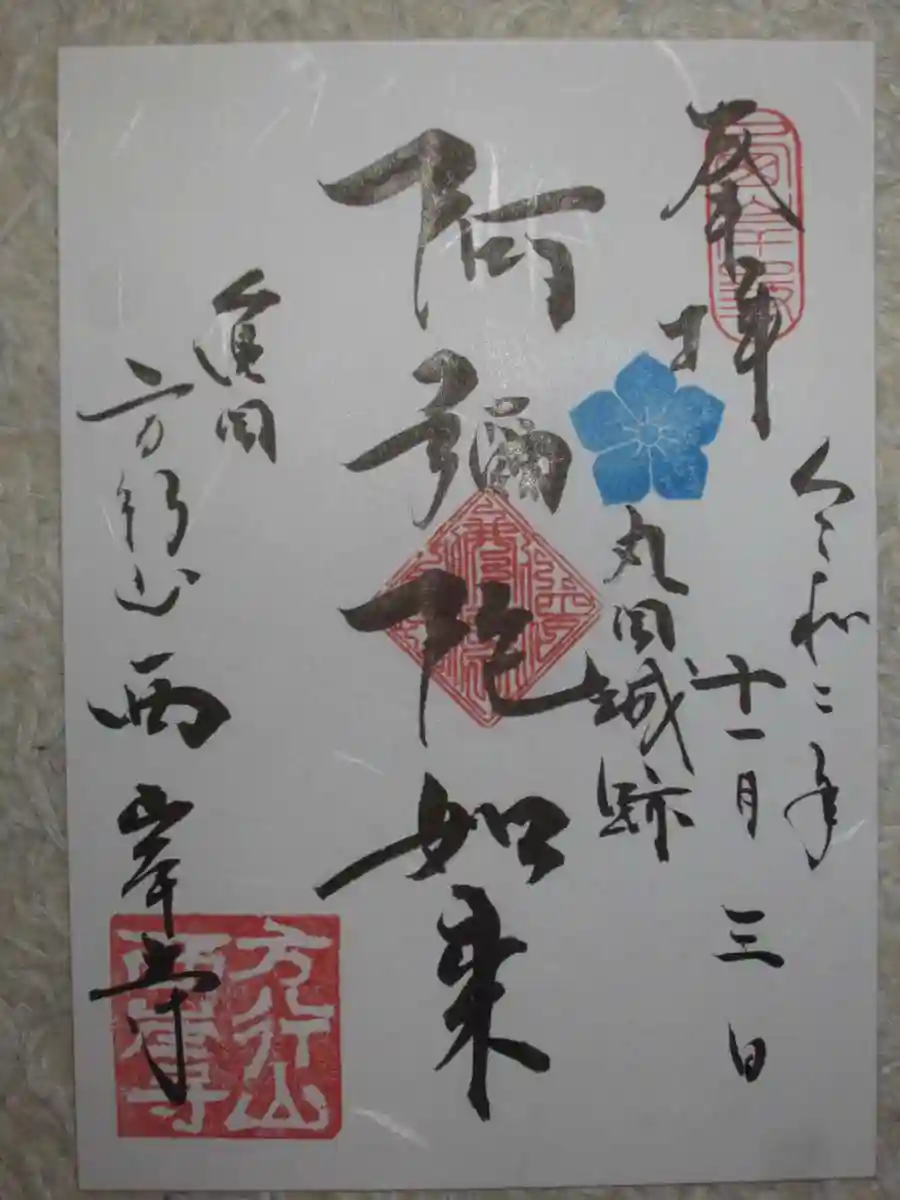 奉拝
令和二年
十一月三日
丸岡城跡
阿彌陀如来
亀岡
方行山西岸寺
方行山
西岸寺